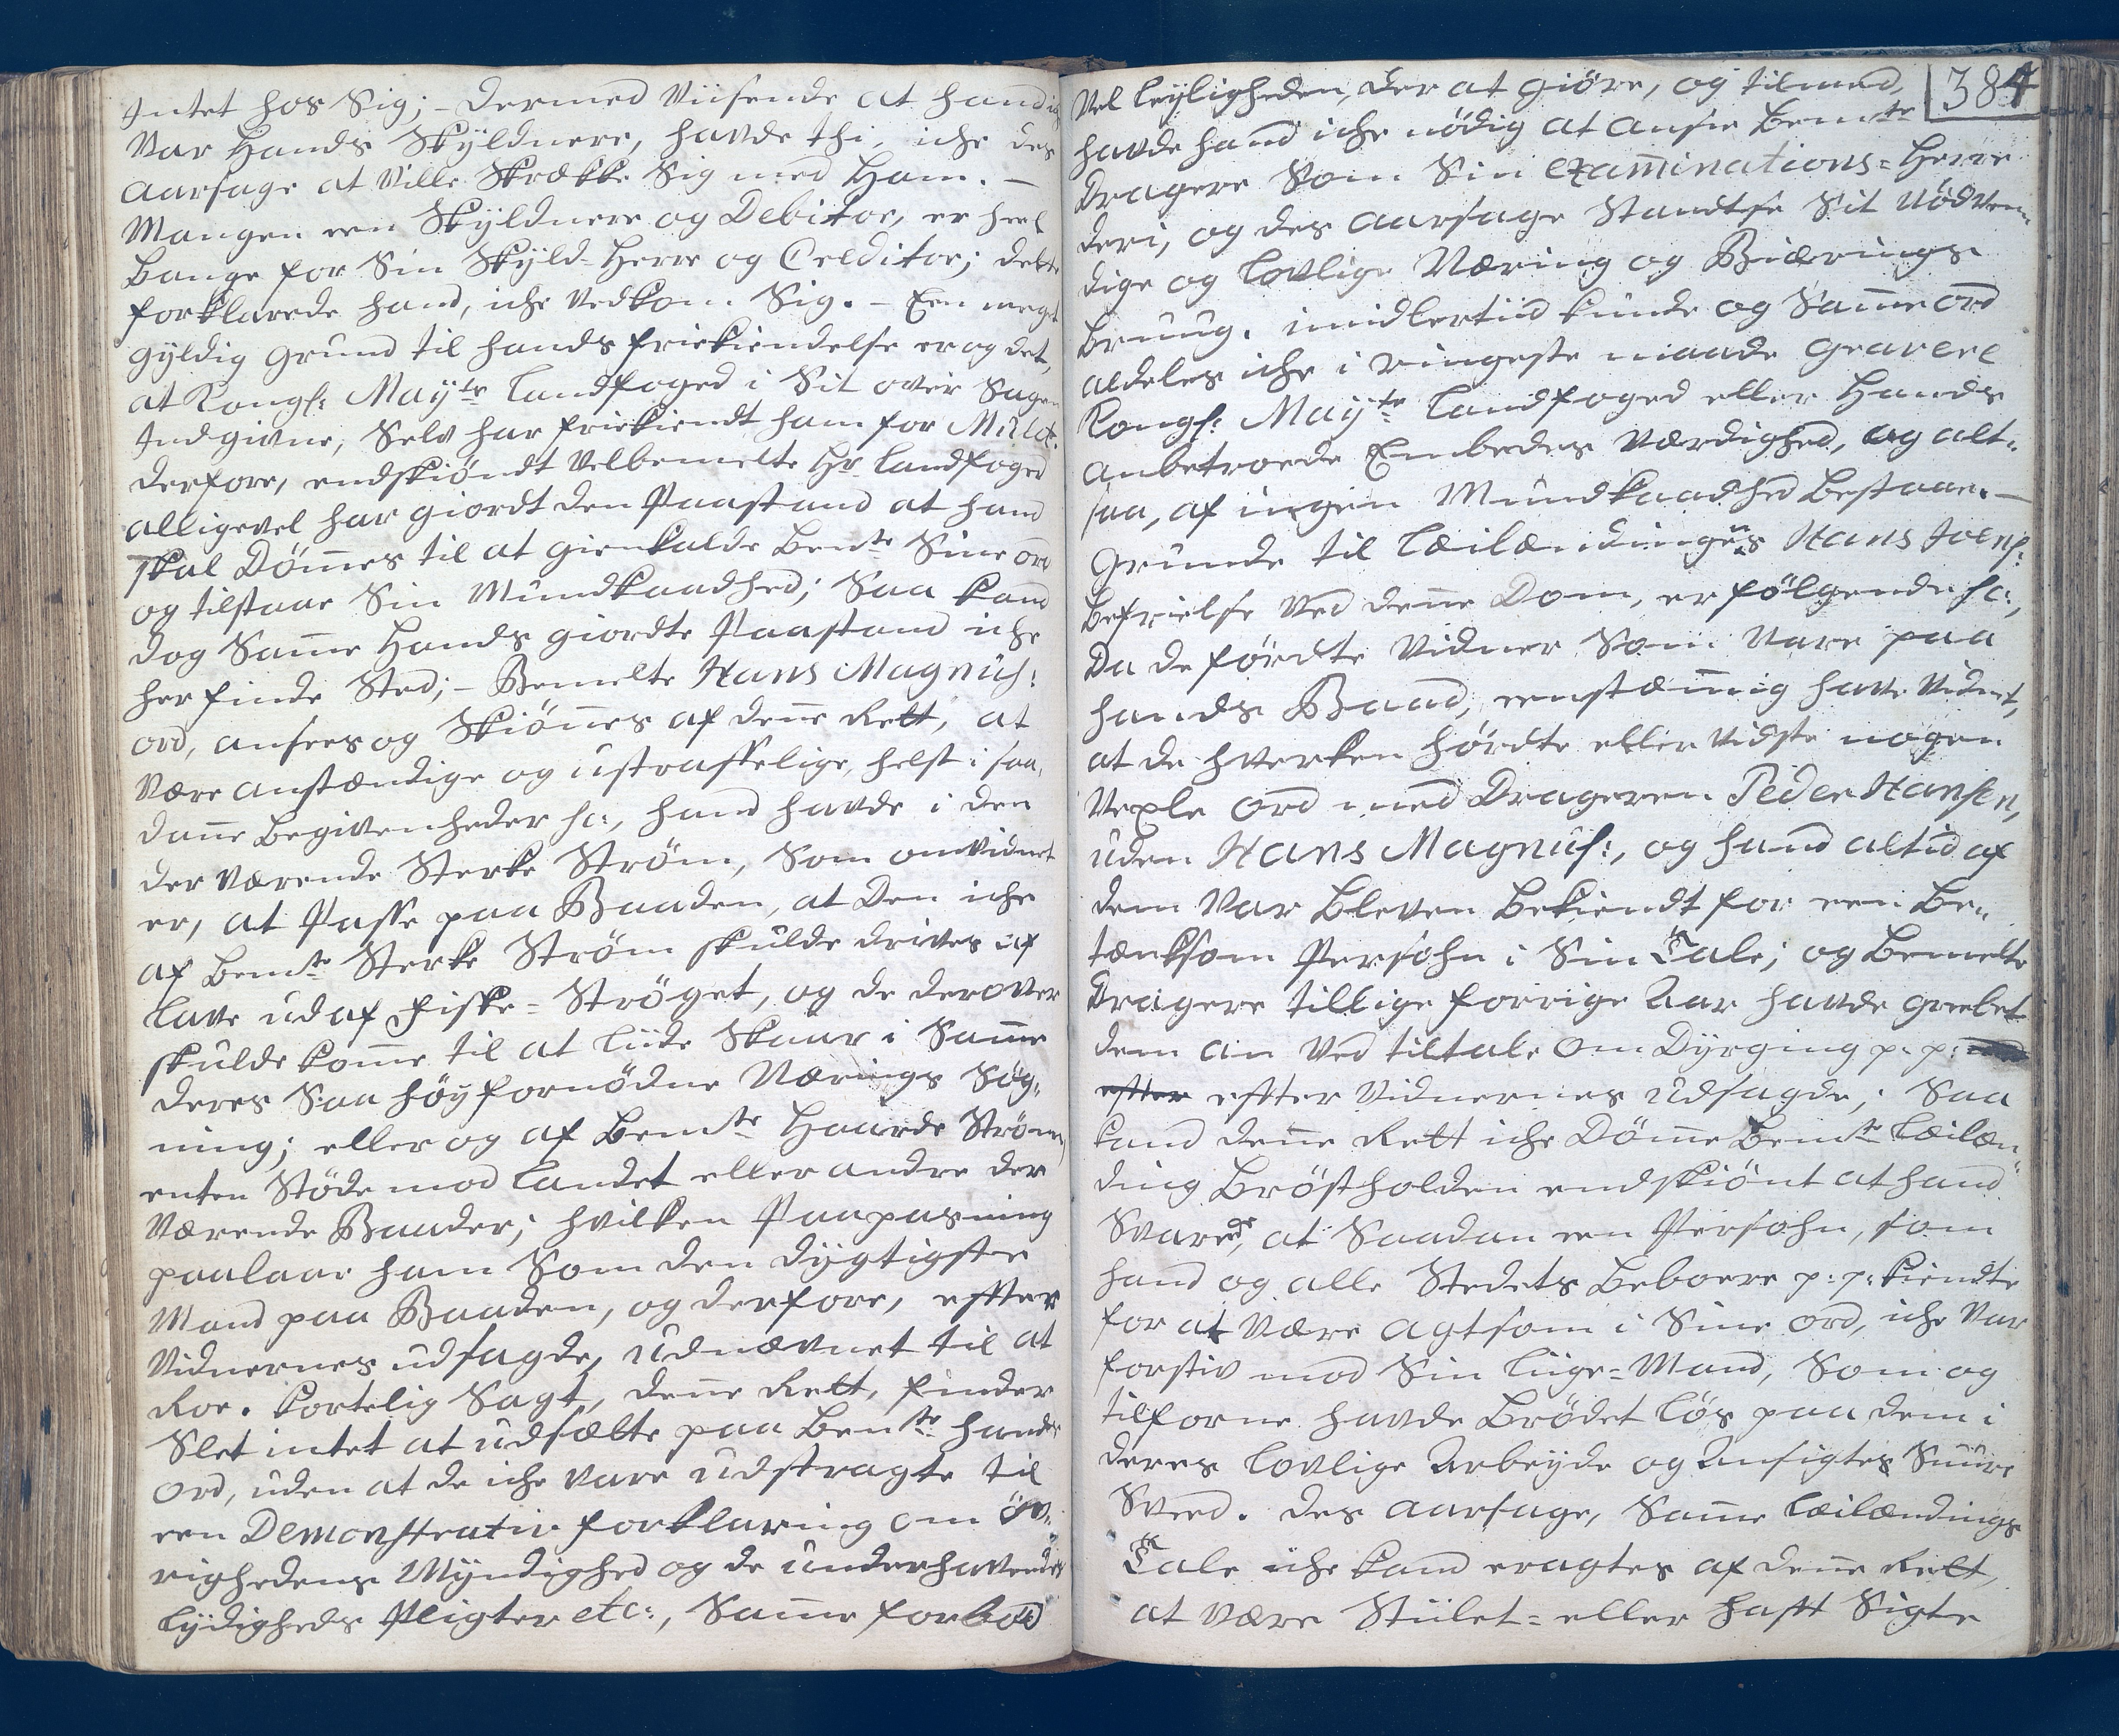 Intet hos Sig; – dermed Viisende at hand ich
Var Hands Skÿldnere, havde thi, iche des
aarsage at Ville Skrække Sig med Ham. –
Mangen een Skÿldnere og Debitor, er heel
bange for Sin Skÿld-Herre og Creditor; dette
forklarede hand, iche Vedkom Sig. – Een meget
gÿldig grund til hands friekiendelse er og det,
at Kongl: Maÿtz Landfoged i Sit over Sagen
Indgivne, Selv har friekiendt ham for Mulct.
derfore, endskiöndt Velbemelte Hr Landfoged
alligevel har giordt den Paastand at hand
skal Dömes til at gienkalde Bemte Sine ord
og tilstaae Sin Mundkaadhed; Saa kand
dog Same Hands giordte Paastand iche
her finde Sted; – Bemelte Hans Magnus:
ord, ansees og Skiönes af dene Rett, at
Være anstændige og ustraffelige, helst i saa-
dane begivenheder sc:, hand havde i den
der Værende Sterke Ström, Som omvidnet
er, at Passe paa Baaden, at Den iche
af Bemte Sterke Ström skulde drives af
lave ud af Fiske-Ströget, og de derover
skulde kome til at liide Skaar i Same
deres Saa höÿfornödne Nærings Søg-
ning; eller og af Bemte Haarde Ström,
enten Støde mod Landet eller andre der
Værende Baader; hvilken Paapasning
paalaae ham Som den dÿgtigste
Mand paa Baaden, og derfore, efter
Vidnernes udsagde, udnævnet til at
Roe. kortelig Sagt, dene Rett, finder
Slet intet at udsætte paa Bemte hands
ord, uden at de iche vare udstragte til
een Demonstrativ forklaring om öv-
righedens Mÿndighed og de underhavendes
lÿdigheds Pligter etc:, Same forbød
384
Vel leÿligheden, der at giöre, og tilmed,
havde hand iche nödig at ansee Bemte
Dragere Som Sin examinations-Herre
deri, og des aarsage Standtse Sit Nödven-
dige og lovlige Næring og Biærings
bruug. imidlertiid kunde og Same ord
aldeles iche i ringeste maade gravere
Kongl: Maÿtz Landfoged eller Hands
anbetroede Embedes Værdighed, og alt-
saa, af ingen Mundkaadhed bestaae. –
Grunde til Læilændingens Hans Joens:
befrielse Ved dene Dom, er følgende sc:,
Da de førdte Vidner Som Vare paa
hands Baad, eenstæmig have Vidnet,
at de hverken hørdte eller vidste nogen
Vexle ord med Drageren Peder Hansen,
uden Hans Magnus:, og hand altid af
dem Var bleven bekiendt for een be-
tænksom Persohn i Sin Tale; og bemelte
Dragere tillige forrige Aar havde grebet
dem an Ved tiltale om Dÿrging p: p:
efter efter Vidnernes udsagde; Saa
kand dene Rett iche Döme Bemte Læilæn-
ding brøstholden endskiönt at hand
Svarede, at Saadan een Persohn, som
hand og alle Stedets beboere p: p: kiendte
for at Være agtsom i Sine ord, iche Var
forstiv mod Sin liige-Mand, Som og
tilforne havde brödet lös paa dem i
deres lovlige Arbeÿde og Ansigtes Suure
Sveed. des aarsage, Same Læilændings
Tale iche kand eragtes af dene Rett,
at være Stiilet- eller haft Sigte